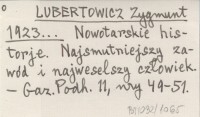 LUBERTOWICZ Zygmunt
1923... Nowotarskie his-
torje. Najsmutniejszy za-
wód i najweselszy człowiek.
– Gaz. Podh. 11, nry 49-51.